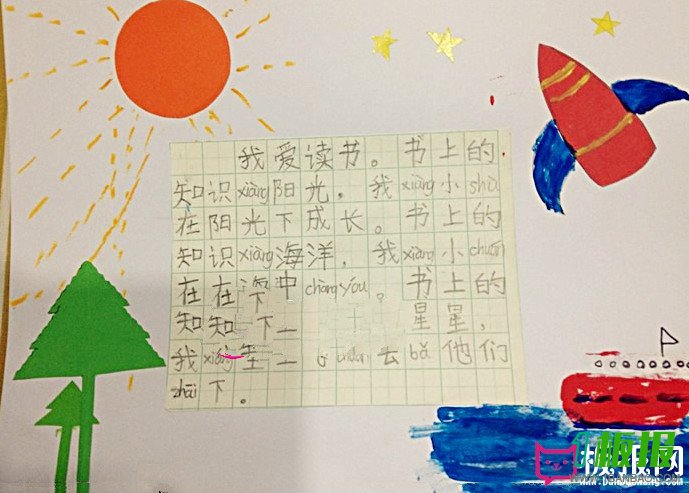 我爱读书。书上的
知识xiàng阳光，我xiàng小shù
在阳光下成长。书上的
知识xiàng海洋，我xiàng小chuán
在在中chàngyóu。书上的
知知下二星星，
我xiàng去bǎ他们
zhāi下。
板报
板报网